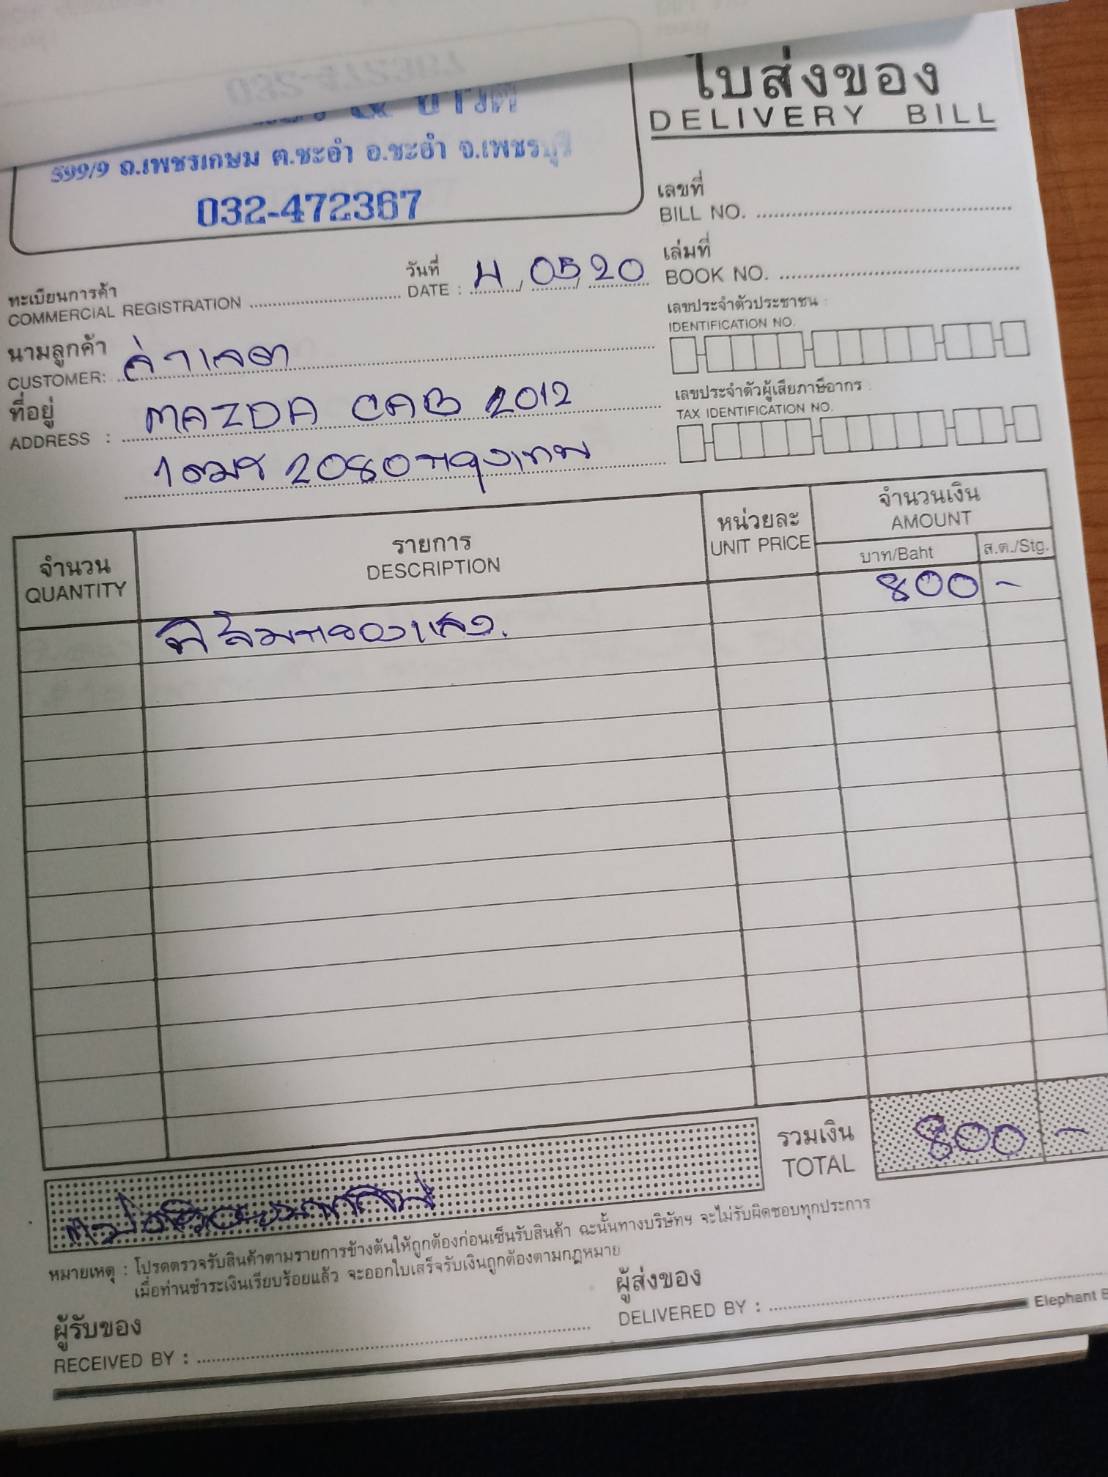 ใบส่งของ
DELIVERY BILL
599/9 ถ.เพชรเกษม ต.ชะอำ อ.ชะอำ จ.เพชรบุรี
032-472367
เลขที่
BILL NO.
เล่มที่
BOOK NO.
วันที่
DATE : 4 05 20
ทะเบียนการค้า
COMMERCIAL REGISTRATION
เลขประจำตัวประชาชน :
IDENTIFICATION NO.
นามลูกค้า
CUSTOMER:
ที่อยู่
ADDRESS : MAZDA CAB 2012
2080 กรุงเทพ
เลขประจำตัวผู้เสียภาษีอากร :
TAX IDENTIFICATION NO.
จำนวน
QUANTITY
รายการ
DESCRIPTION
หน่วยละ
UNIT PRICE
จำนวนเงิน
AMOUNT
บาท/Baht
ส.ต./Stg.
800 -
รวมเงิน
TOTAL
800 -
หมายเหตุ : โปรดตรวจรับสินค้าตามรายการข้างต้นให้ถูกต้องก่อนเซ็นรับสินค้า ฉะนั้นทางบริษัทฯ จะไม่รับผิดชอบทุกประการ
เมื่อท่านชำระเงินเรียบร้อยแล้ว จะออกใบเสร็จรับเงินถูกต้องตามกฎหมาย
ผู้รับของ
RECEIVED BY :
ผู้ส่งของ
DELIVERED BY :
Elephant